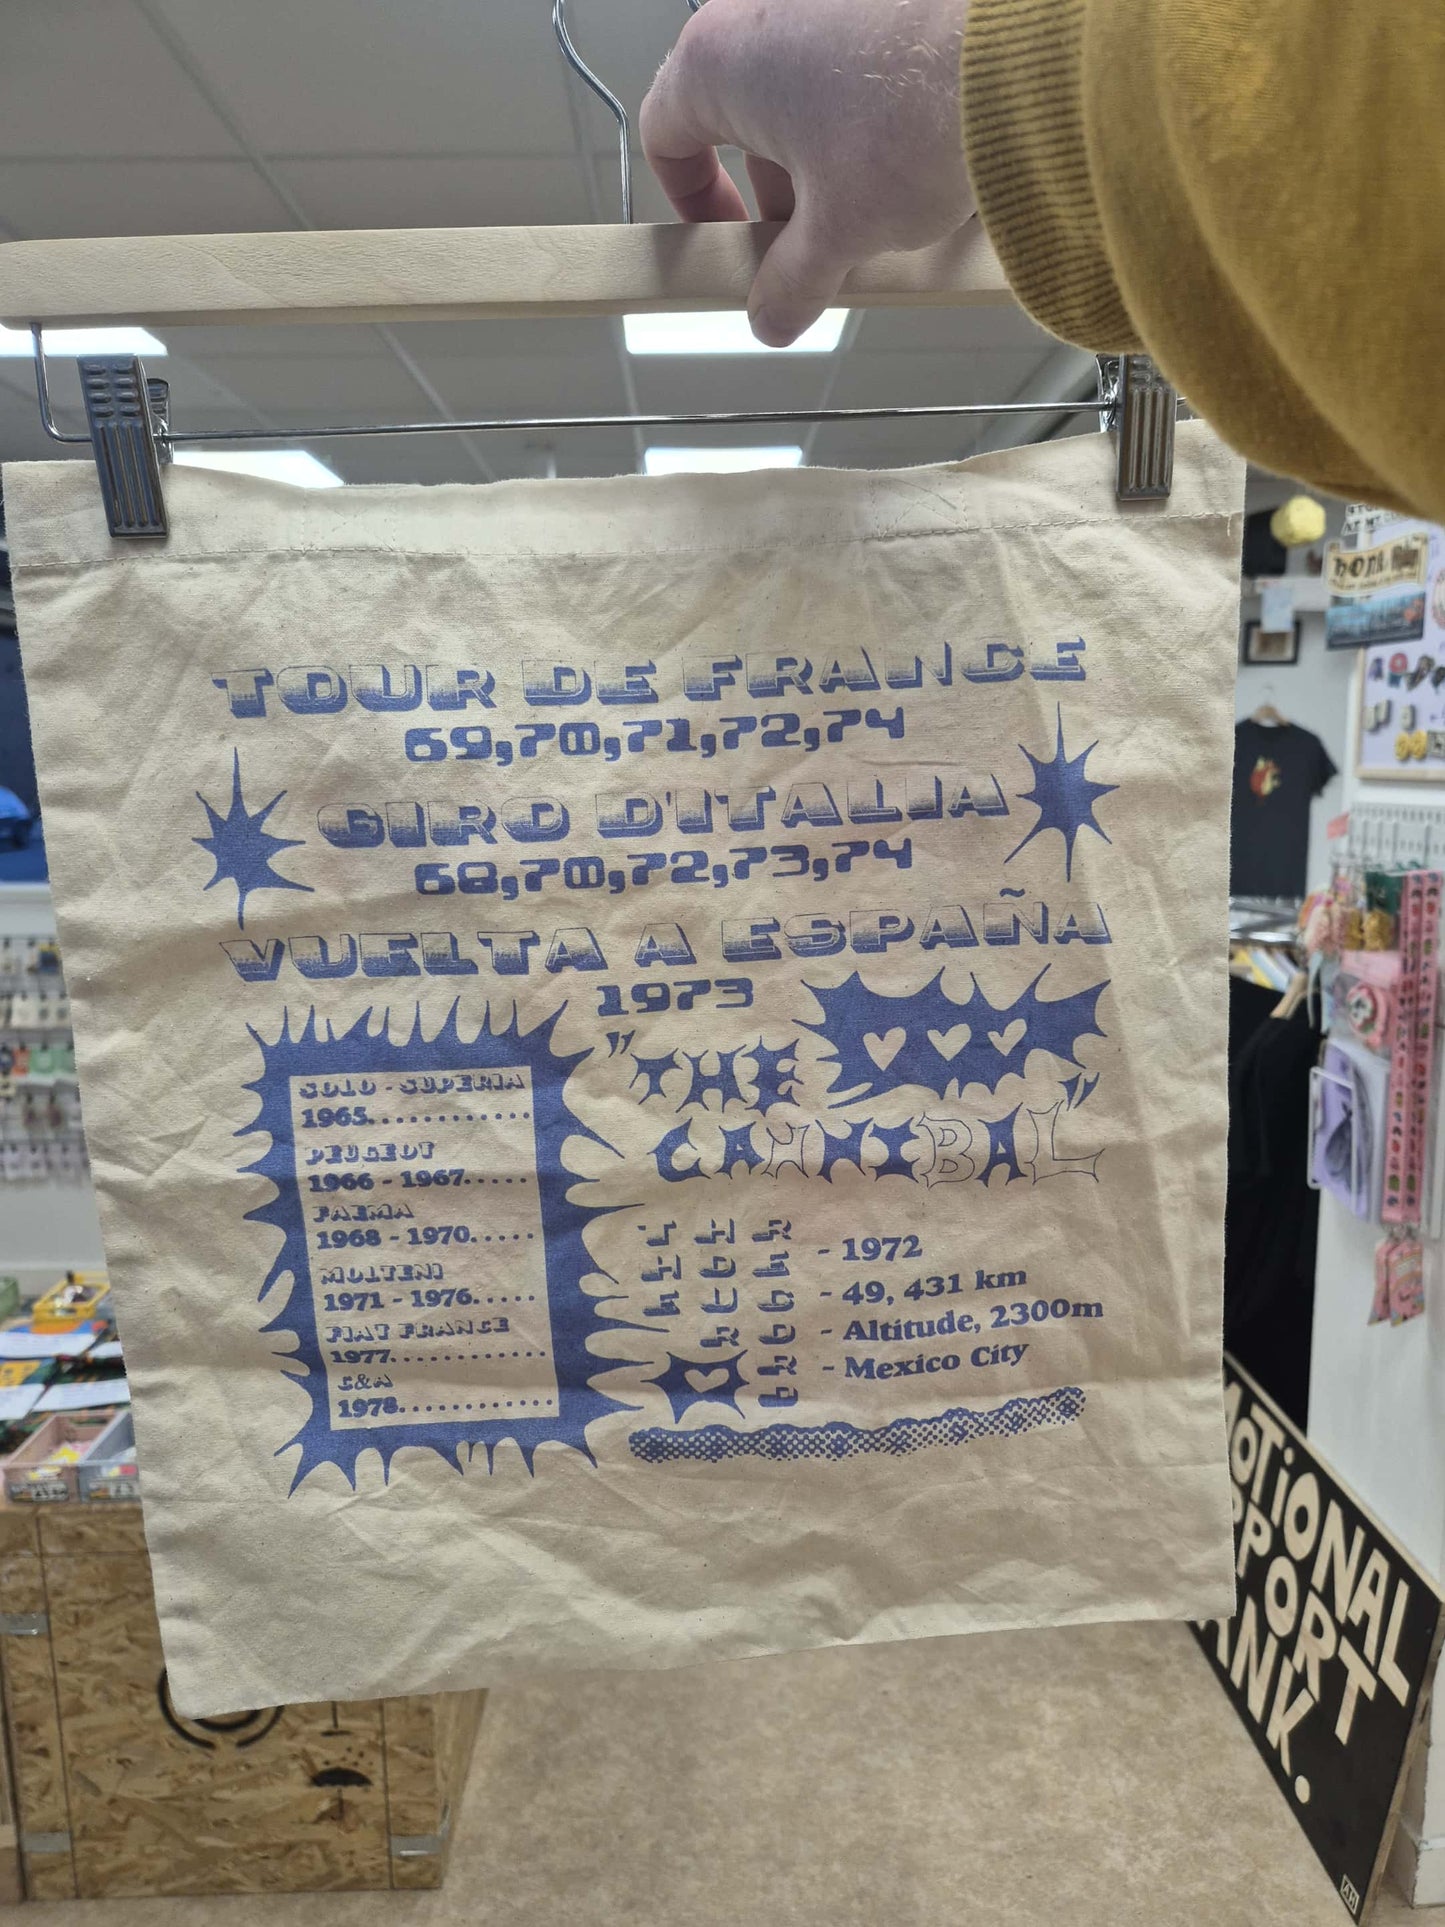 TOUR DE FRANCE
69,70,71,72,74
GIRO D'ITALIA
68,70,72,73,74
VUELTA A ESPAÑA
1973
"THE
CANNIBAL"
SOLO - SUPERIA
1965............
PEUGEOT
1966 - 1967.....
FAEMA
1968 - 1970.....
MOLTENI
1971 - 1976.....
FIAT FRANCE
1977............
C&A
1978............
THE HOUR RECORD
- 1972
- 49, 431 km
- Altitude, 2300m
- Mexico City
EMOTIONAL
SUPPORT